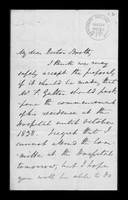 My dear Doctor Booth,
I think we may
safely accept the proposal
if it should be made that
Mr F. Galton should post-
pone the commencement
of his residence at the
Hospital until October
1838. I regret that I
cannot attend the Com-
mittee at the Hospital
tomorrow, but I hope
you will be able to do